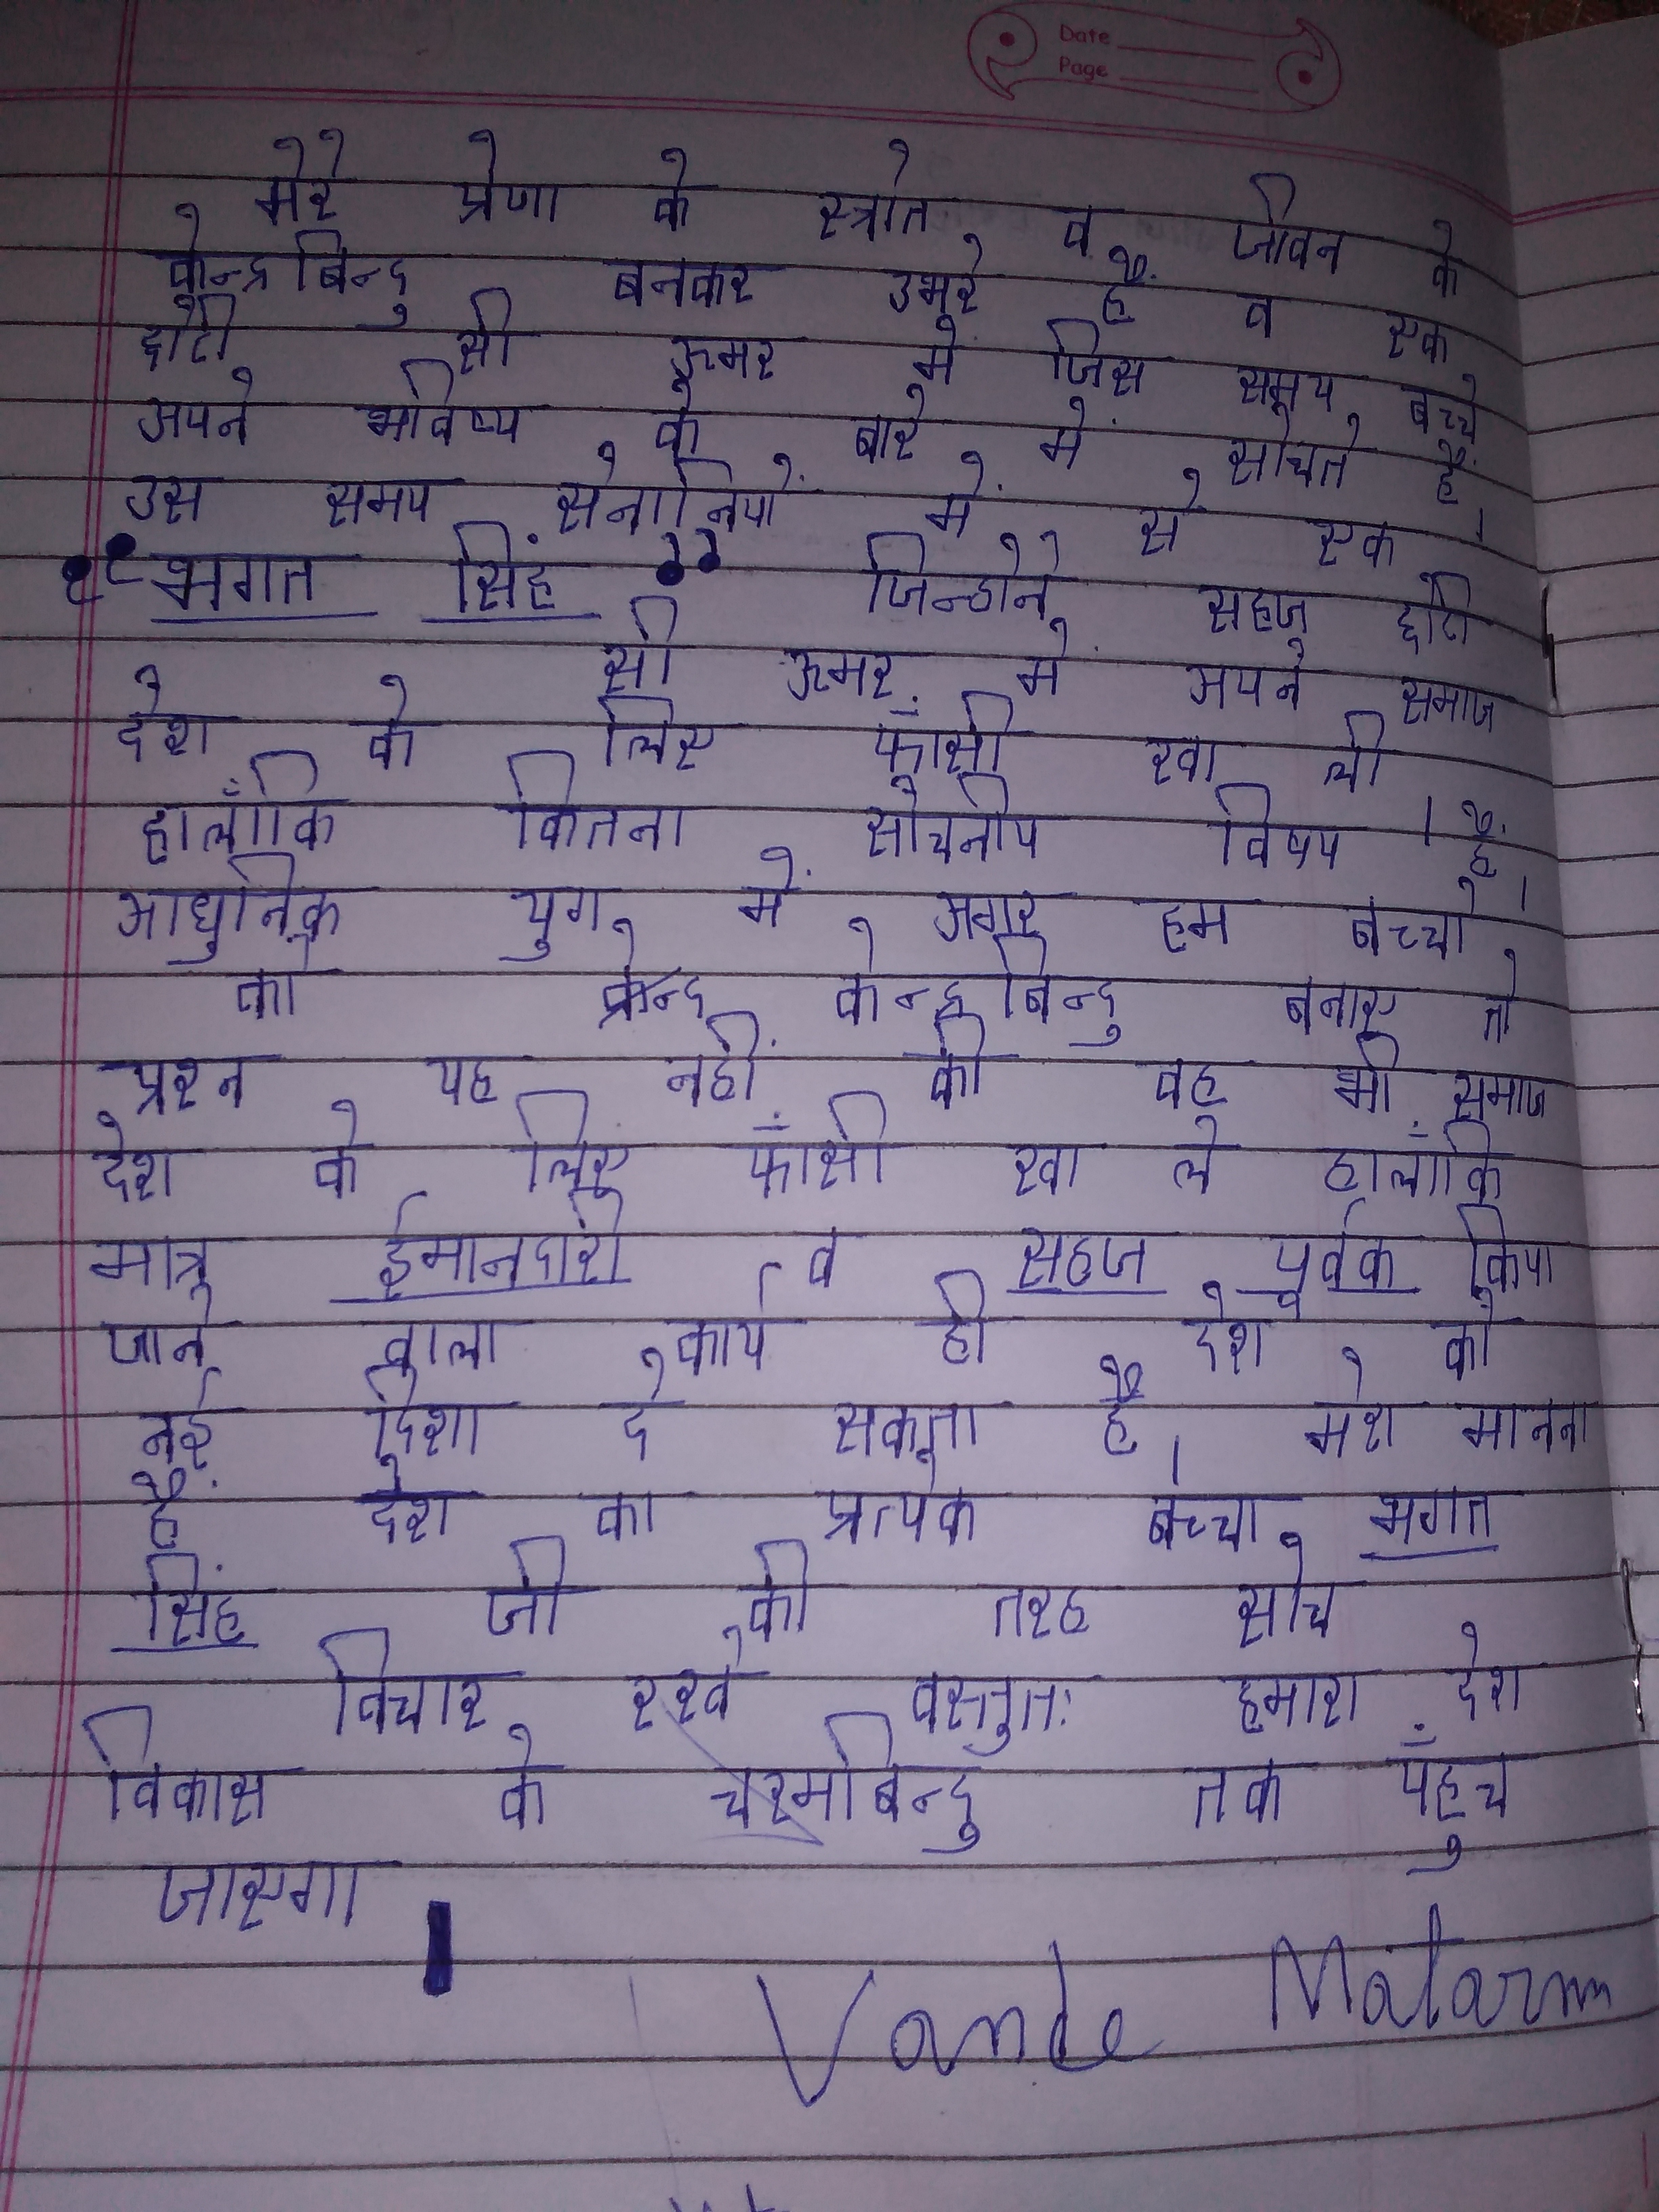 Date
Page
मेरे प्रेणा के स्त्रोत व जीवन के
केन्द्रबिन्दु बनकर उभरे हैं व एक
छोटी सी ऊमर मे जिस समय बच्चे
अपने भविष्य के बारे में सोचते हैं।
उस समय सेनानियों में से एक
"भगत सिंह" जिन्होने सहज छोटी
सी ऊमर में अपने समाज
देश के लिए फाँसी खा ली ।
हालाँकि कितना सोचनीय विषय हैं।
आधुनिक युग में अगर हम बच्चो
को केन्द्रबिन्दु बनाए तो
प्रश्न यह नहीं की वह भी समाज
देश के लिए फाँसी खा ले हालाँकि
मात्र ईमानदारी व सहज पूर्वक किया
जाने वाला कार्य ही देश को
नई दिशा दे सकता है। मेरा मानना
हैं देश का प्रत्येक बच्चा भगत
सिंह जी की तरह सोच
विचार रखे वस्तुतः हमारा देश
विकास के चरमबिन्दु तक पँहुच
जाएगा ।
Vande Matarm